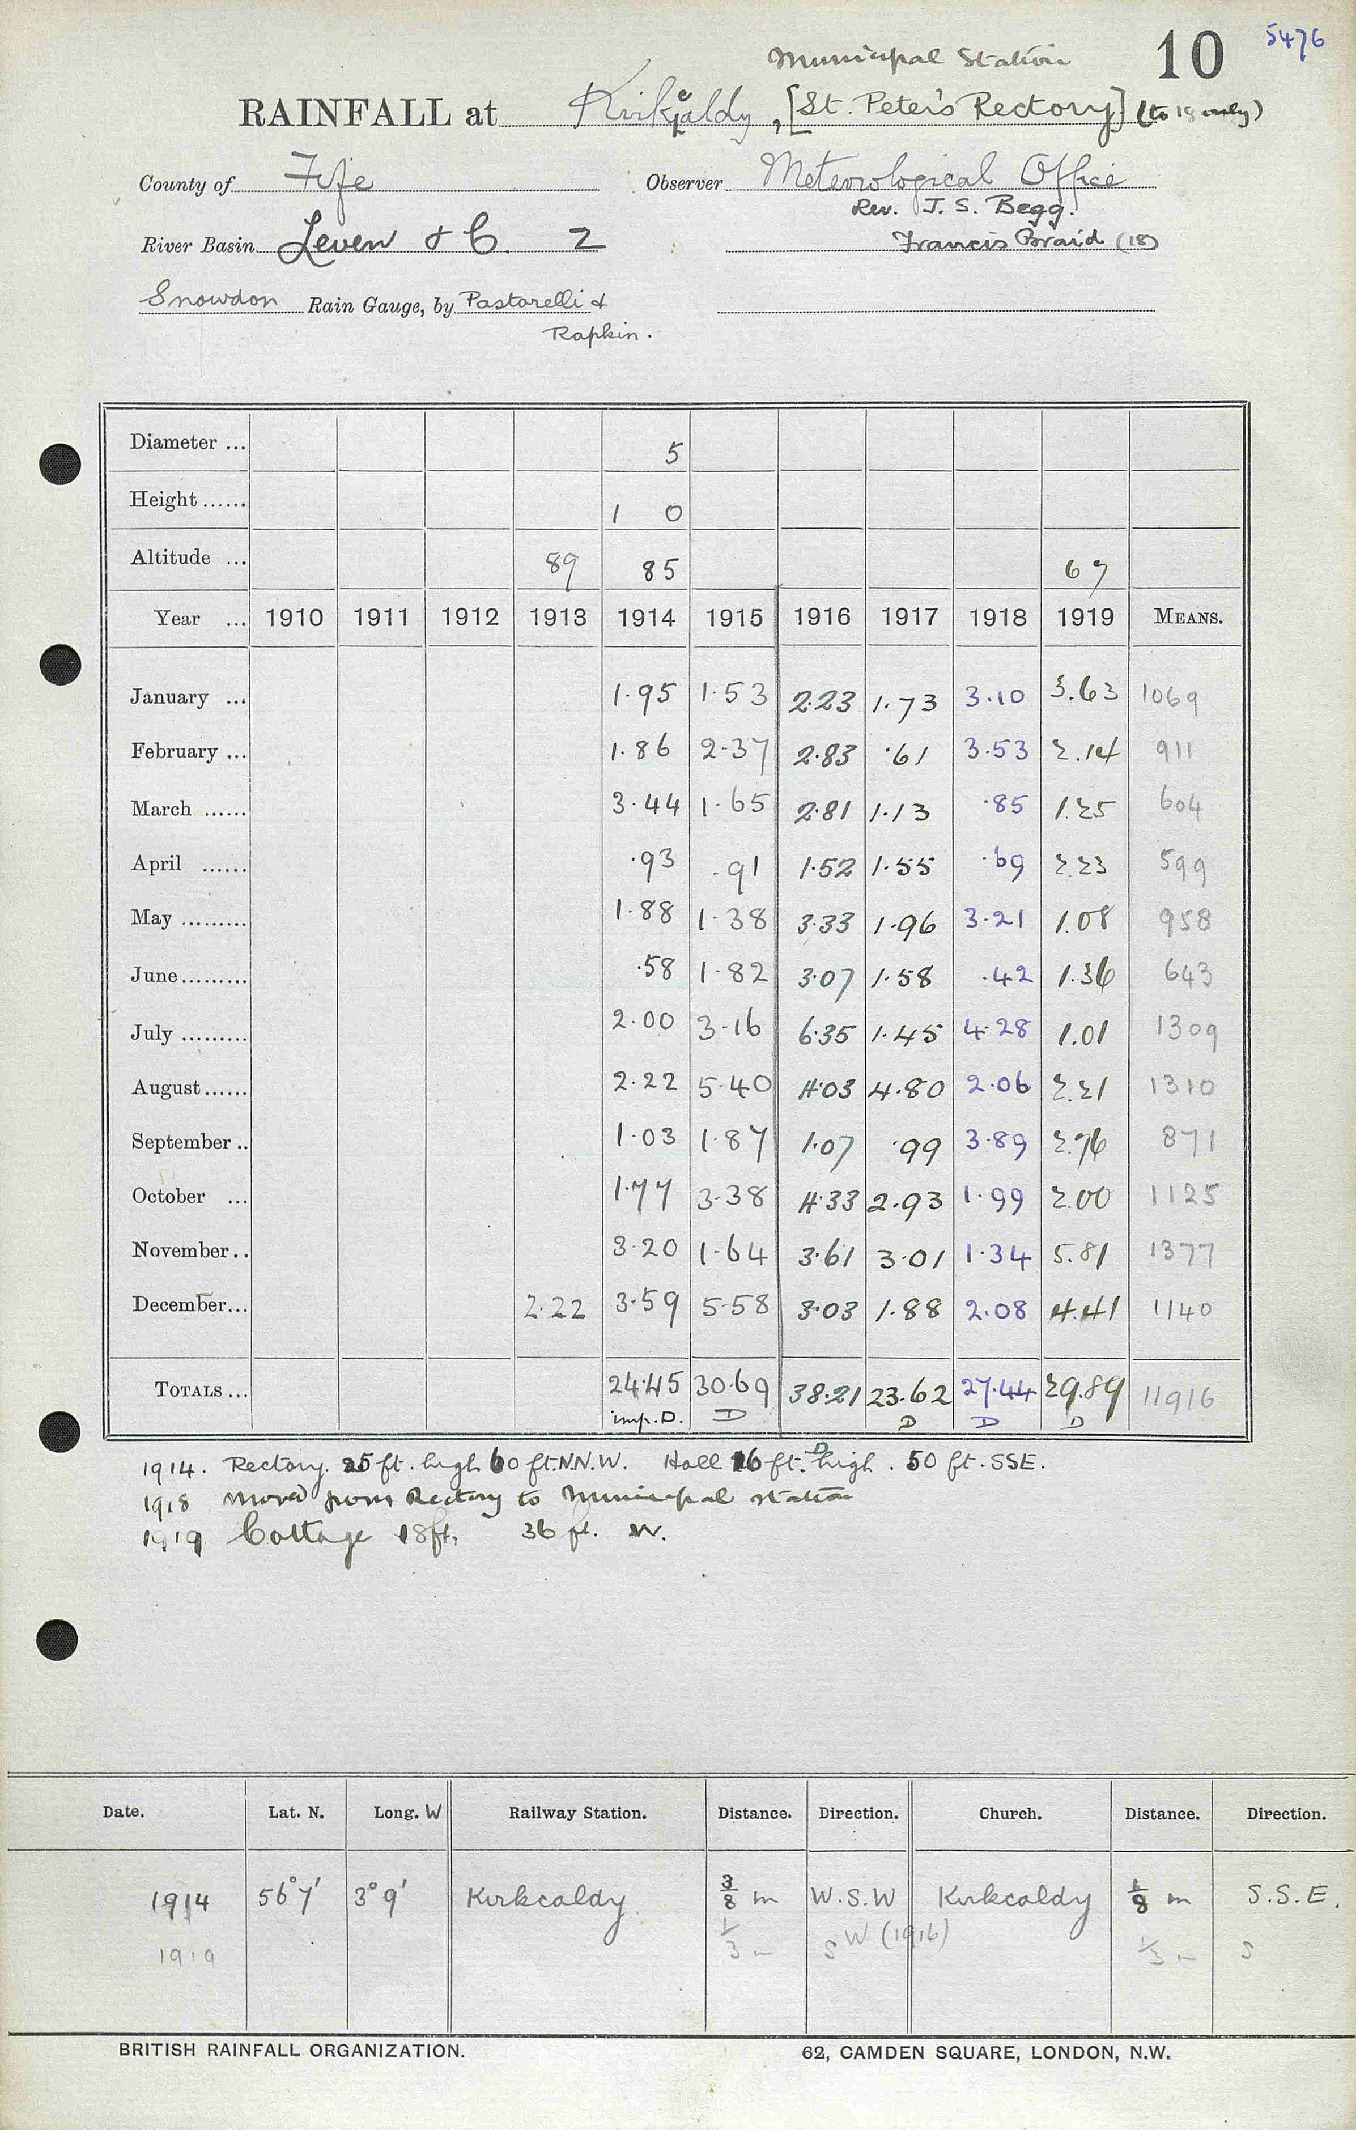 Municipal Station 10 5476
RAINFALL at Kirkcaldy, [St. Peter's Rectory] (to 18 only)
County of Fife Observer Meteorological Office
Rev. J. S. Begg.
River Basin Leven & C. 2 Francis Braid (18)
Snowdon Rain Gauge, by Pastorelli &
Rapkin.
Diameter ... 5
Height ...... 1 0
Altitude ... 89 85 67
Year ... 1910 1911 1912 1913 1914 1915 1916 1917 1918 1919 MEANS.
January ... 1.95 1.53 2.23 1.73 3.10 3.63 1069
February ... 1.86 2.37 2.83 .61 3.53 2.14 911
March ...... 3.44 1.65 2.81 1.13 .85 1.25 604
April ...... .93 .91 1.52 1.55 .69 2.23 599
May ......... 1.88 1.38 3.33 1.96 3.21 1.08 958
June ......... .58 1.82 3.07 1.58 .42 1.36 643
July ......... 2.00 3.16 6.35 1.45 4.28 1.01 1309
August ...... 2.22 5.40 4.03 4.80 2.06 2.21 1310
September .. 1.03 1.87 1.07 .99 3.89 2.76 871
October ... 1.77 3.38 4.33 2.93 1.99 2.00 1125
November .. 3.20 1.64 3.61 3.01 1.34 5.81 1377
December ... 2.22 3.59 5.58 3.03 1.88 2.08 4.41 1140
TOTALS ... 24.45 30.69 38.21 23.62 27.44 29.89 11916
imp. D. D D D D D
1914. Rectory 25 ft. high 60 ft. N.N.W. Hall 26 ft. high. 50 ft. SSE.
1918 Moved from Rectory to Municipal Station
1919 Cottage 18 ft. 36 ft. W.
Date. Lat. N. Long. W Railway Station. Distance. Direction. Church. Distance. Direction.
1914 56° 7' 3° 9' Kirkcaldy 3/8 m W.S.W Kirkcaldy 1/8 m S.S.E.
1919 1/3 m SW (1916) 1/3 m S
BRITISH RAINFALL ORGANIZATION. 62, CAMDEN SQUARE, LONDON, N.W.